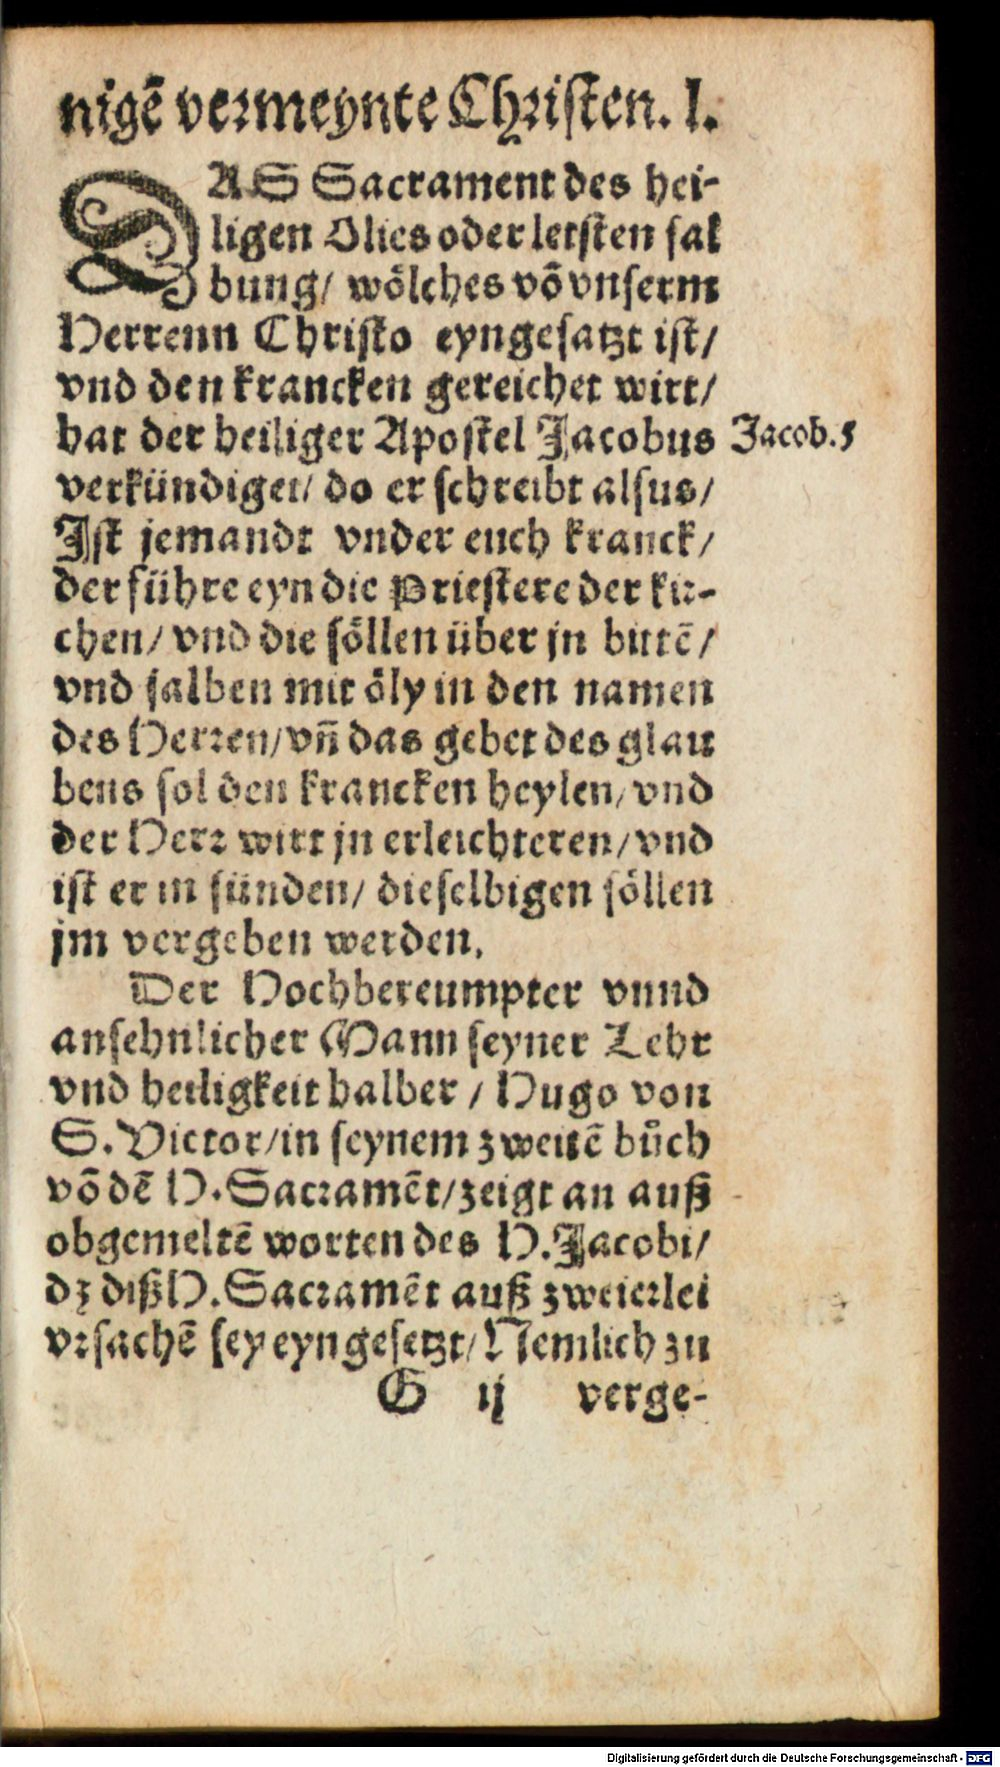 nigē vermeynte Christen. I.
DAS Sacrament des hei-
ligen Olies oder letsten sal
bung/ wölches vō vnserm
Herrenn Christo eyngesatzt ist/
vnd den krancken gereichet wirt/
hat der heiliger Apostel Jacobus
Jacob. 5
verkündiget/ do er schreibt alsus/
Ist jemandt vnder euch kranck/
der führe eyn die Priestere der kir-
chen/ vnd die söllen über jn bittē/
vnd salben mit öly in den namen
des Herren/ vñ das gebet des glau
bens sol den krancken heylen/ vnd
der Herr wirt jn erleichteren/ vnd
ist er in sünden/ dieselbigen söllen
jm vergeben werden.
Der Hochbereumpter vnnd
ansehnlicher Mann seyner Lehr
vnd heiligkeit halber / Hugo von
S. Victor/ in seynem zweitē bůch
vō dē H. Sacramēt/ zeigt an auß
obgemeltē worten des H. Jacobi/
dz diß H. Sacramēt auß zweierlei
vrsachē sey eyngesetzt/ Nemlich zu
G ij verge-
Digitalisierung gefördert durch die Deutsche Forschungsgemeinschaft - DFG